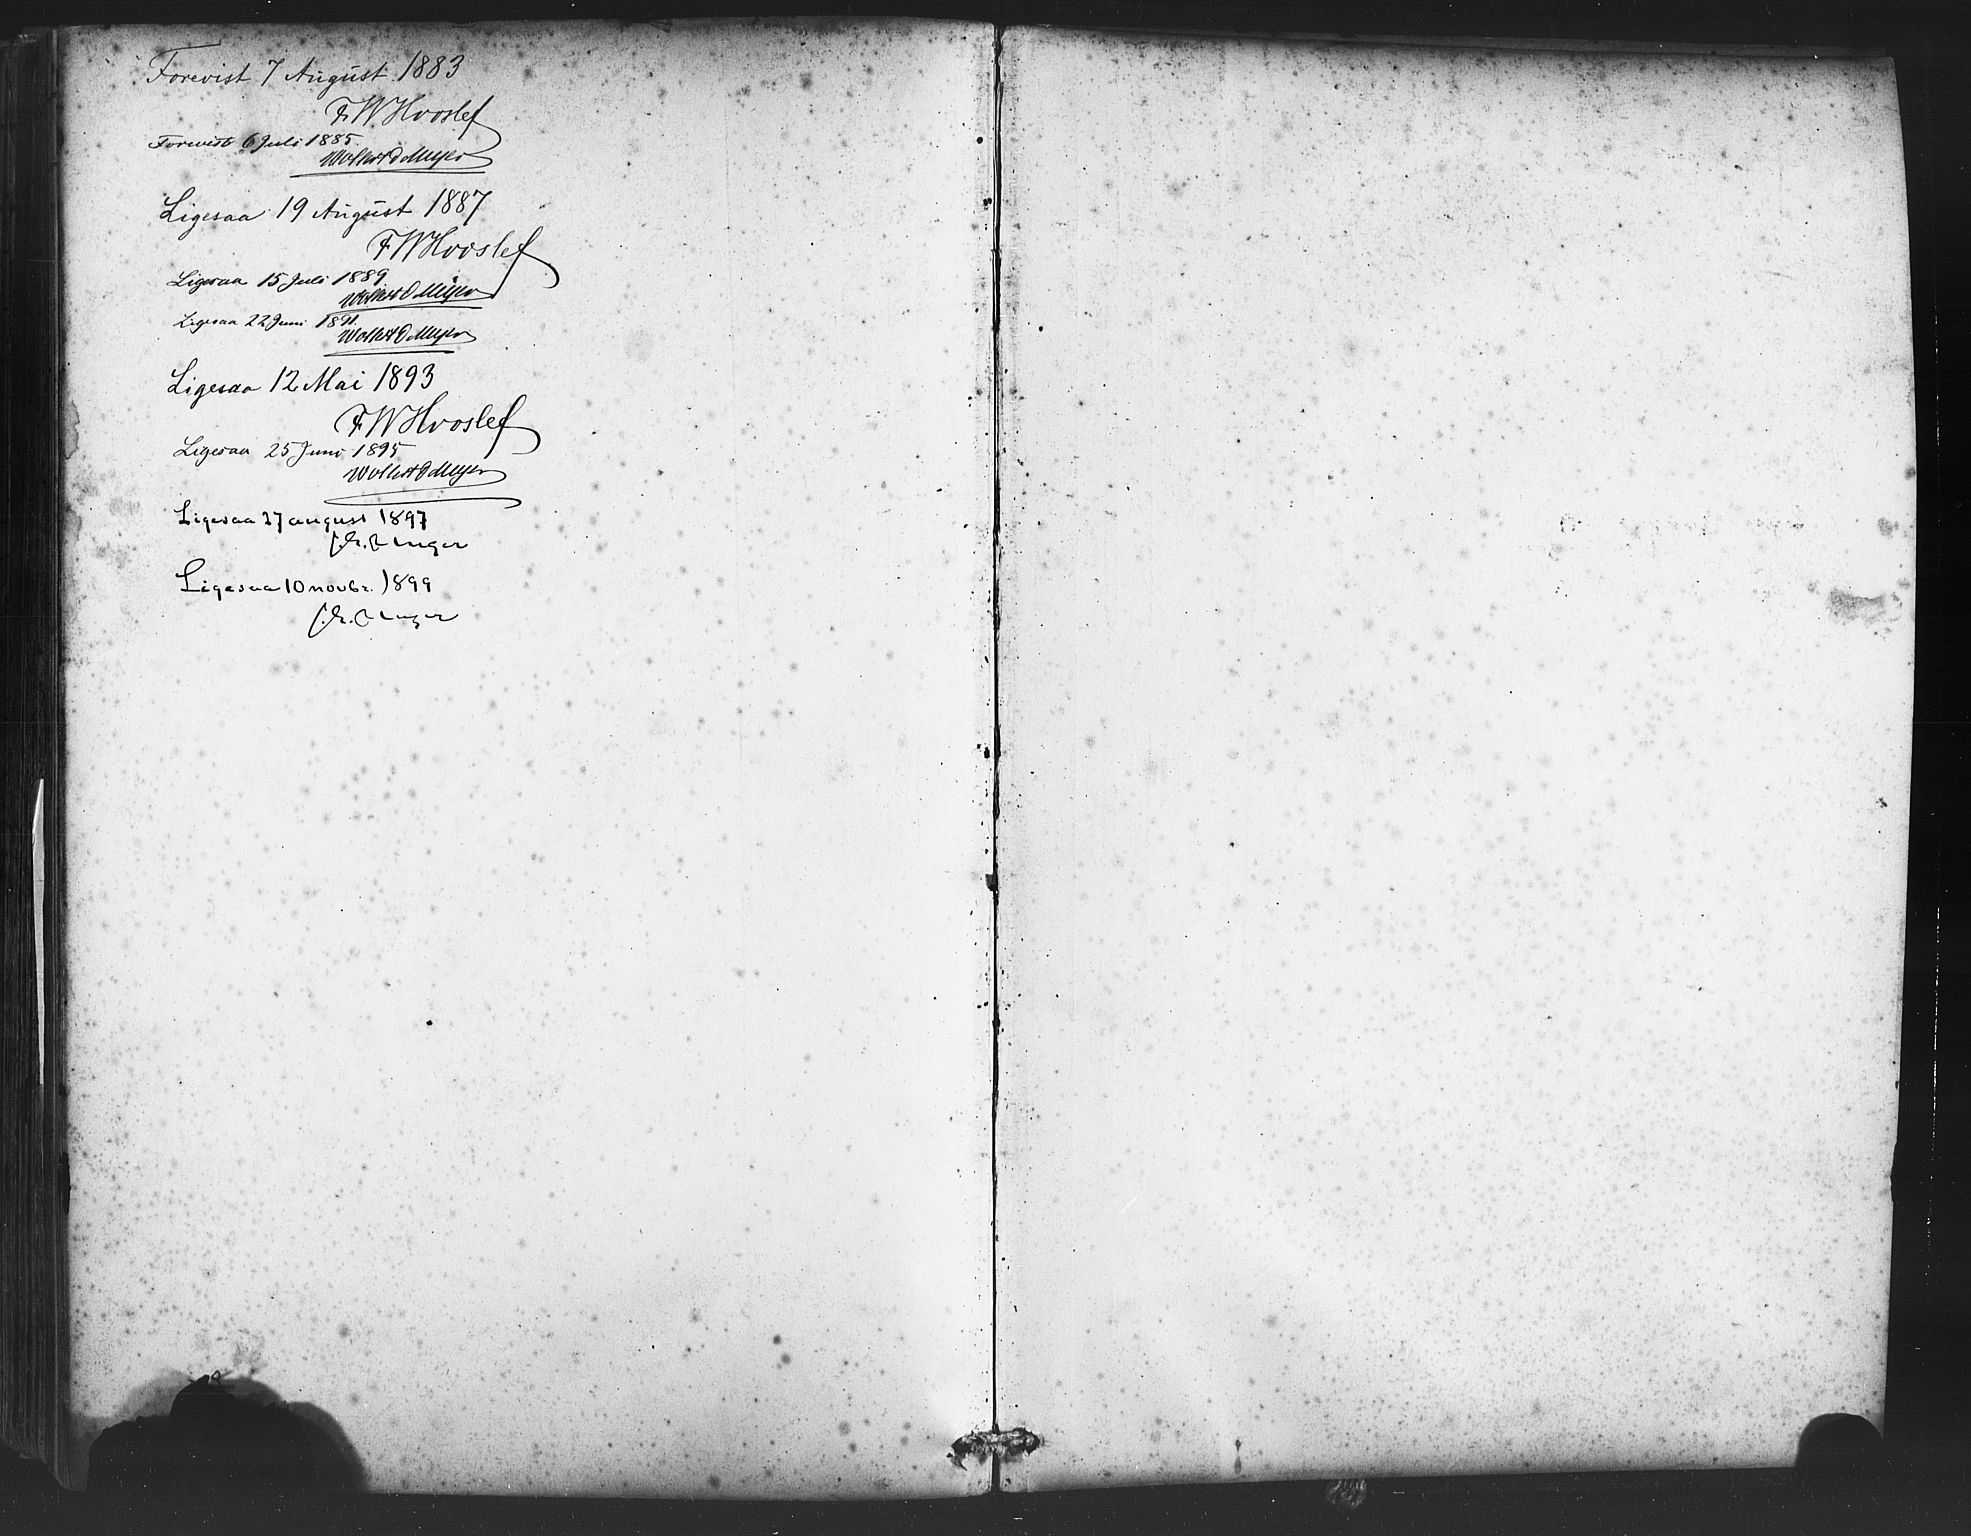 Forevist 7 August 1883
FWHvoslef
Forevist 6 Juli 1885.
Wollert D Meyer
Ligesaa 19 August 1887
FWHvoslef
Ligesaa 15 Juli 1889
Wollert D Meyer
Ligesaa 22 Juni 1891.
Wollert D Meyer
Ligesaa 12 Mai 1893
FWHvoslef
Ligesaa 25 Juni 1895
Wollert D Meyer
Ligesaa 27 august 1897
Unger
Ligesaa 10 novbr. 1899
Unger